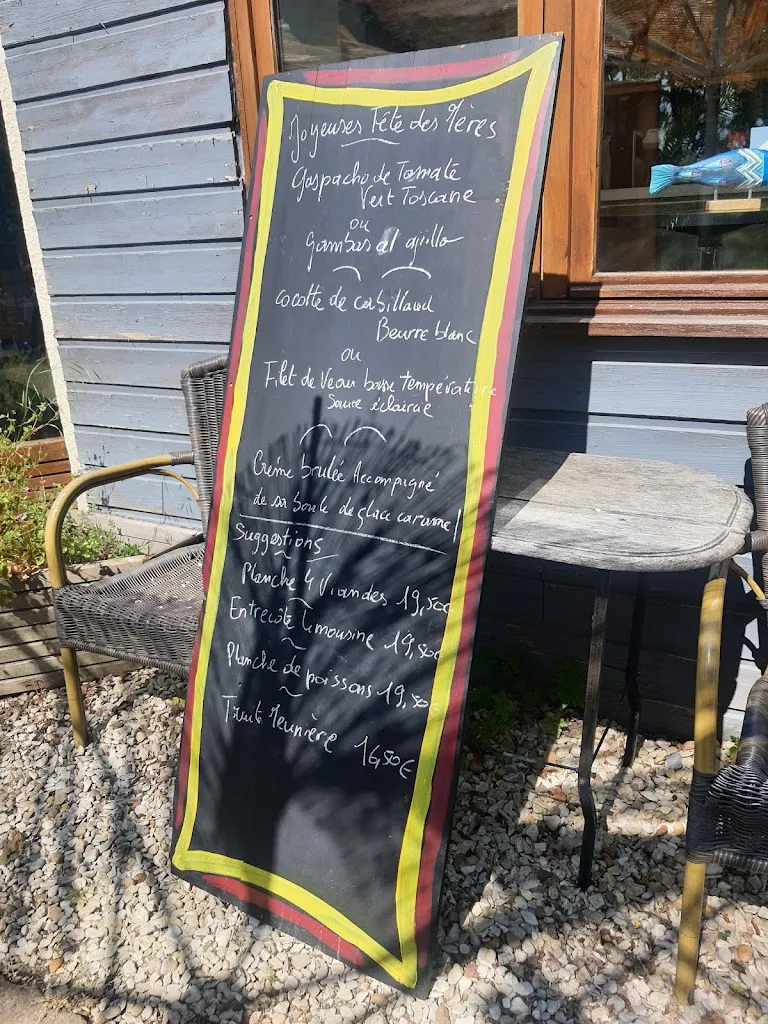 Joyeuses Fête des Mères
Gaspacho de Tomate
Vert Toscane
ou
Gambas al ajillo
Cocotte de cabillaud
Beurre blanc
ou
Filet de Veau basse température
Sauce éclaircie
Crème brulée Accompagné
de sa boule de glace caramel
Suggestions
Planche 4 Viandes 19,50€
Entrecôte limousine 19,50€
Planche de poissons 19,50€
Truite Meunière 16,50€